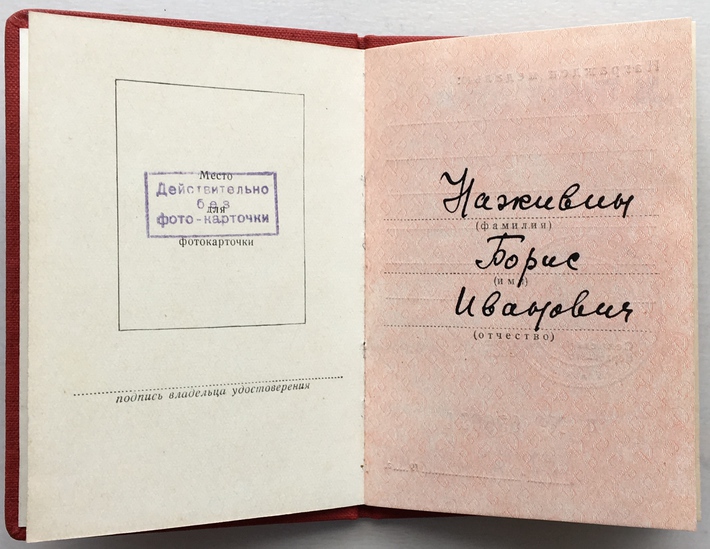 Место
для
фотокарточки
Действительно
без
фото-карточки
подпись владельца удостоверения
Наживин
(фамилия)
Борис
(имя)
Иванович
(отчество)